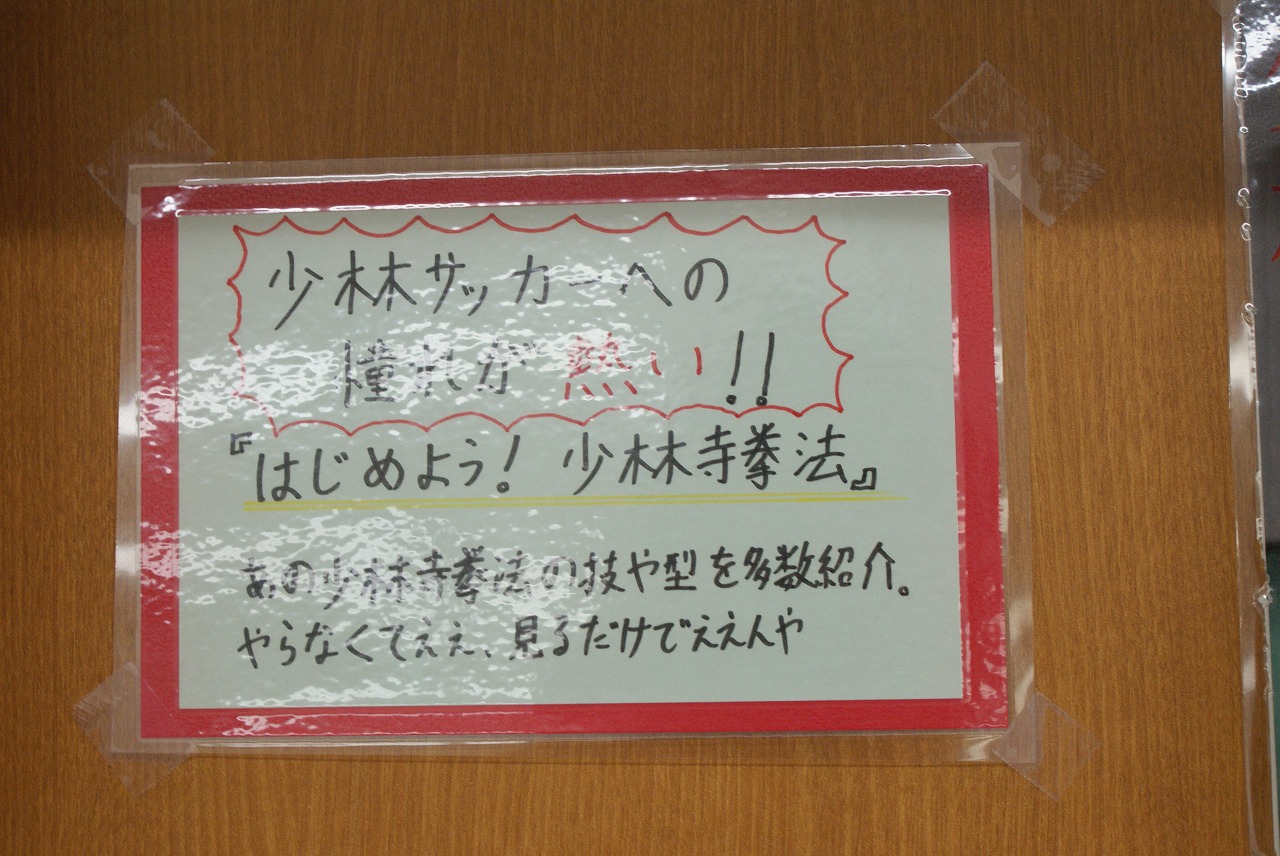 少林サッカーへの
憧れが熱い!!
『はじめよう! 少林寺拳法』
あの少林寺拳法の技や型を多数紹介。
やらなくてええ、見るだけでええんや